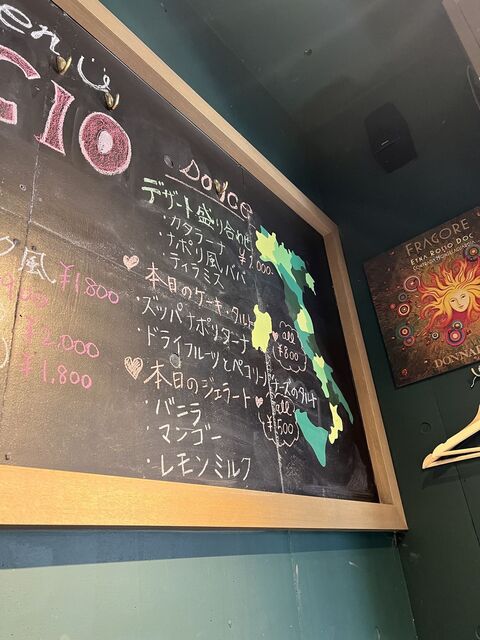 en
GIO
風
¥1,800
¥2,000
¥1,800
デザート盛り合わせ
・カタラーナ ¥1,000-
・ナポリ風ババ
・ティラミス
♥本日のケーキ・タルト
・ズッパナポリターナ all ¥800
・ドライフルーツとペコリーノチーズのタルト
♥本日のジェラート♥ all ¥500
・バニラ
・マンゴー
・レモンミルク
FRAGORE
ETNA ROSSO DOC